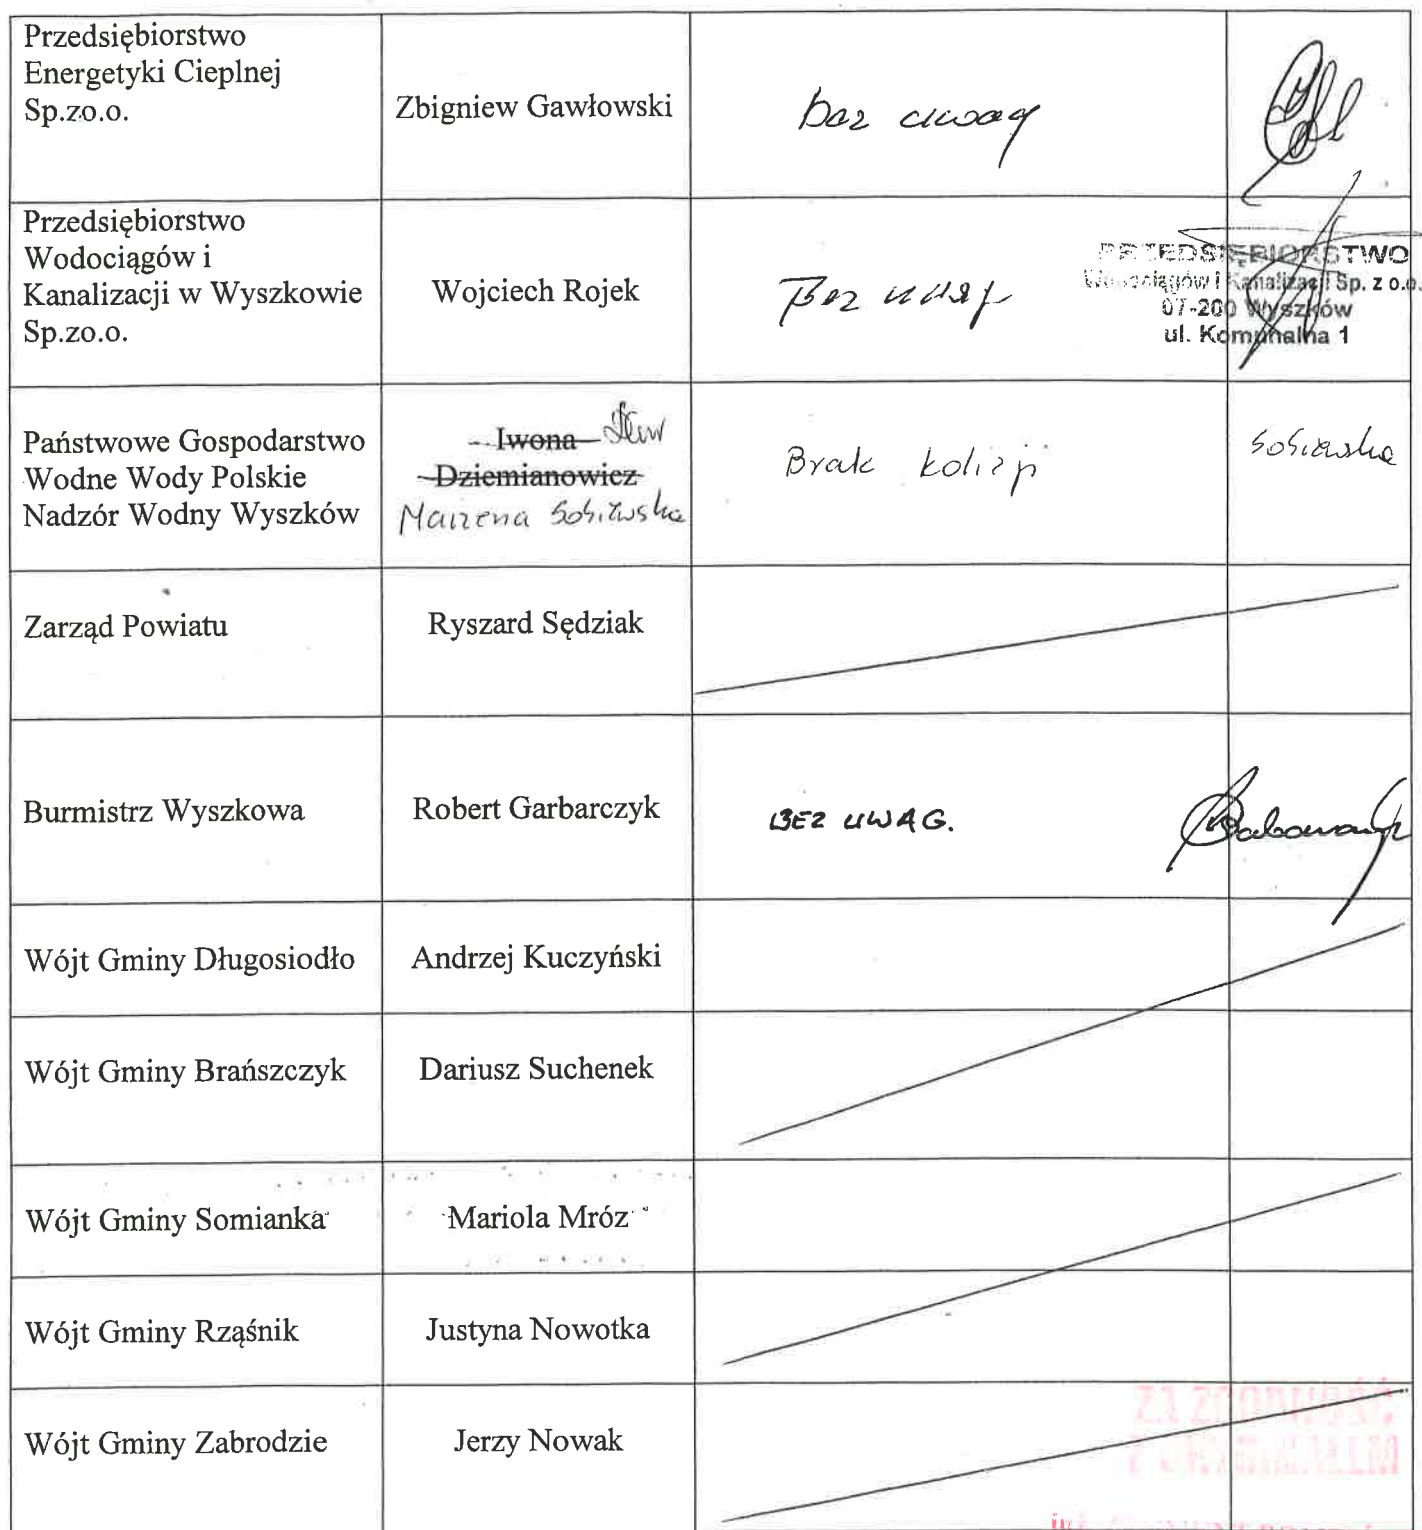 Przedsiębiorstwo
Energetyki Cieplnej
Sp.zo.o.
Zbigniew Gawłowski
bez uwag
Przedsiębiorstwo
Wodociągów i
Kanalizacji w Wyszkowie
Sp.zo.o.
Wojciech Rojek
Bez uwag
PRZEDSIĘBIORSTWO
Wodociągów i Kanalizacji Sp. z o.o.
07-200 Wyszków
ul. Komunalna 1
Państwowe Gospodarstwo
Wodne Wody Polskie
Nadzór Wodny Wyszków
Iwona
Dziemianowicz
Marzena
Brak kolizji
Zarząd Powiatu
Ryszard Sędziak
Burmistrz Wyszkowa
Robert Garbarczyk
BEZ UWAG.
Wójt Gminy Długosiodło
Andrzej Kuczyński
Wójt Gminy Brańszczyk
Dariusz Suchenek
Wójt Gminy Somianka
Mariola Mróz
Wójt Gminy Rząśnik
Justyna Nowotka
Wójt Gminy Zabrodzie
Jerzy Nowak
ZA ZGODNOŚĆ
Z ORYGINAŁEM